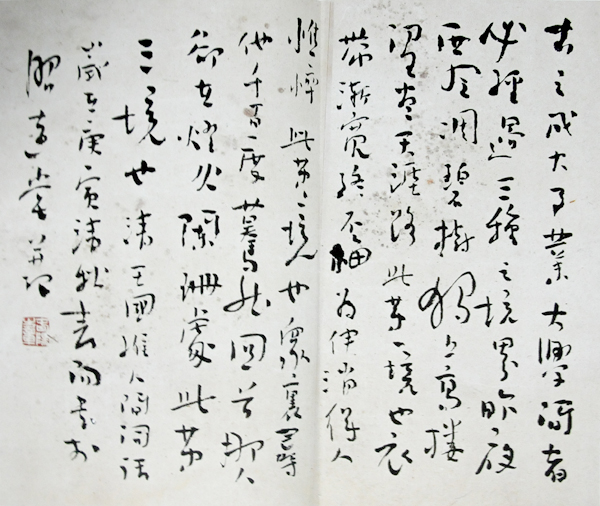 古之成大事業大學問者
必經過三種之境界昨夜
西風凋碧樹獨上高樓
望盡天涯路此第一境也衣
帶漸寬終不悔為伊消得人
憔悴此第二境也眾裏尋
他千百度驀然回首那人
卻在燈火闌珊處此第
三境也 王國維人間詞話
歲在庚寅清秋 於
堂